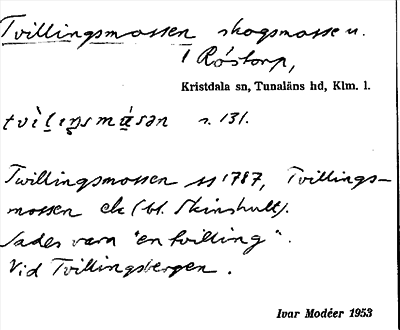 Tvillingsmossen skogsmosse u.
1 Röstorp,
Kristdala sn, Tunaläns hd, Klm. l.
tvìlıŋsmásən s. 131.
Twillingsmossen ss 1787, Tvillings-
mossen ek (bl. Skinshult).
Sades vara "en tvilling".
Vid Tvillingsbergen.
Ivar Modéer 1953